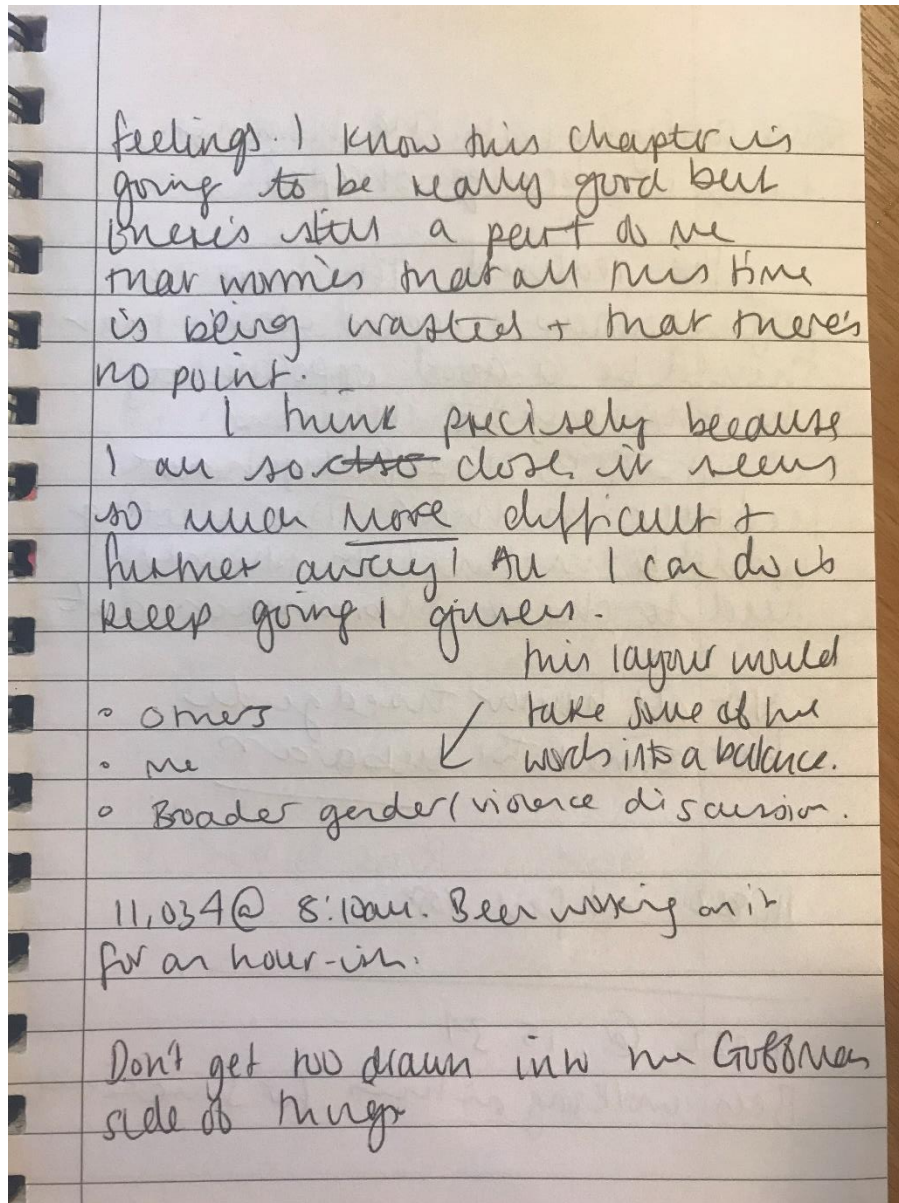 feelings. I know this chapter is
going to be really good but
there's still a part of me
that worries that all this time
is being wasted + that there's
no point.
I think precisely because
I am so close, it seems
so much more difficult +
further away! All I can do is
keep going I guess.
this layout would
take some of the
words into a balance.
• Others
• Me
• Broader gender/violence discussion.
11,034@ 8:10am. Been working on it
for an hour-ish.
Don't get too drawn into the Goffman
side of things